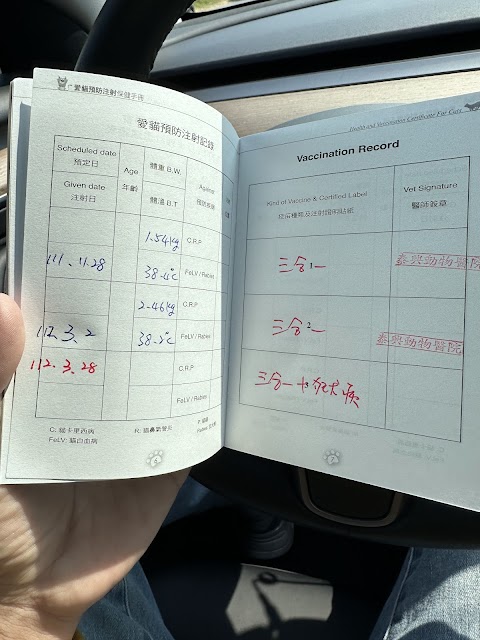 愛貓預防注射保健手冊
愛貓預防注射記錄
Scheduled date
預定日
Given date
注射日
Age
年齡
體重 B.W.
體溫 B.T
Against
預防疾病
1.54kg
C.R.P
111.11.28
38.4℃
FeLV / Rabies
2.46kg
C.R.P
112.3.2
38.2℃
FeLV / Rabies
112.3.28
C.R.P
FeLV / Rabies
C: 貓卡里西病
R: 貓鼻氣管炎
FeLV: 貓白血病
Health and Vaccination Certificate For Cats
Vaccination Record
Kind of Vaccine & Certified Label
疫苗種類及注射證明貼紙
Vet Signature
醫師簽章
三合一
泰興動物醫院
三合
泰興動物醫院
三合一+狂犬病